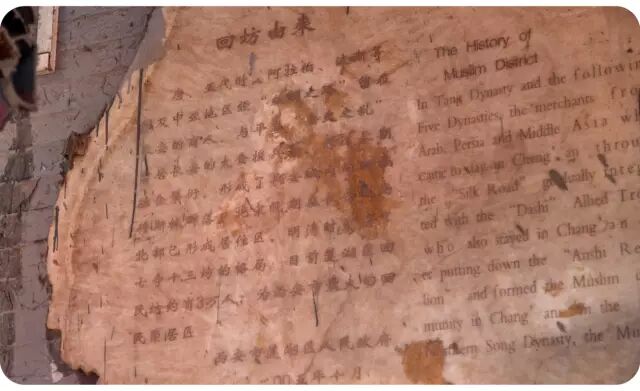 回坊由来
唐、五代时从阿拉伯、波斯等
及中亚地区经 之路 留在
长安的商人 与平 史之乱"
居长安的大食援 期
融合繁衍 形成了
穆斯林群落 北宋
北部已形成居住区 明清时
七寺十三坊的格局 目前莲湖 回
民坊约有3万人 为西安市最大的回
民聚居区
西安市莲湖区人民政府
年十月
The History of
Muslim District
In Tang Dynasty and the following
Five Dynasties, the merchants from
Arab, Persia and Middle Asia w
came to stay in Chang an throu
the "Silk Road" gradually integ
ted with the "Dashi" Allied Tr
who also stayed in Chang'an
er putting down the "Anshi Re
lion and formed the Muslim
munity in Chang an n the
Northern Song Dynasty, the Mu